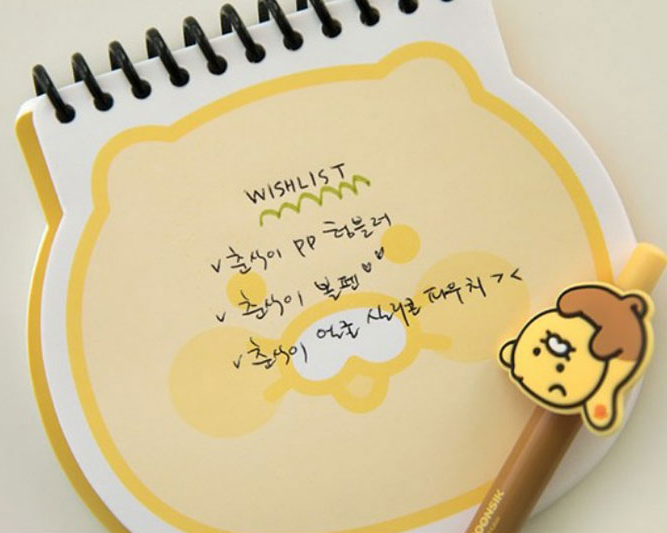 WISHLIST
v 춘식이 PP 텀블러
v 춘식이 볼펜 ♡♡
v 춘식이 얼굴 실리콘 파우치 > <
OONSIK